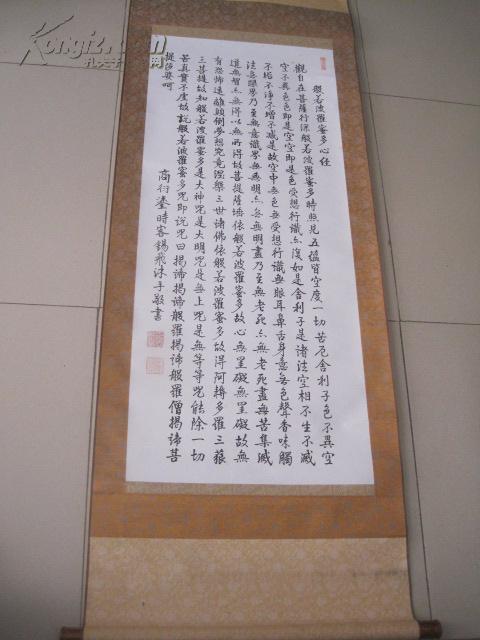 般若波羅蜜多心经
觀自在菩薩行深般若波羅蜜多時照見五蘊皆空度一切苦厄舍利子色不異空
空不異色色即是空空即是色受想行識亦復如是舍利子是諸法空相不生不滅
不垢不淨不增不減是故空中無色無受想行識無眼耳鼻舌身意無色聲香味觸
法無眼界乃至無意識界無無明亦無無明盡乃至無老死亦無老死盡無苦集滅
道無智亦無得以無所得故菩提薩埵依般若波羅蜜多故心無罣礙無罣礙故無
有恐怖遠離顛倒夢想究竟涅槃三世諸佛依般若波羅蜜多故得阿耨多羅三藐
三菩提故知般若波羅蜜多是大神咒是大明咒是無上咒是無等等咒能除一切
苦真實不虛故說般若波羅蜜多咒即說咒曰揭諦揭諦般羅揭諦般羅僧揭諦菩
提薩婆呵
商衍鎏時客錫飛沐手敬書
Kongfz.com